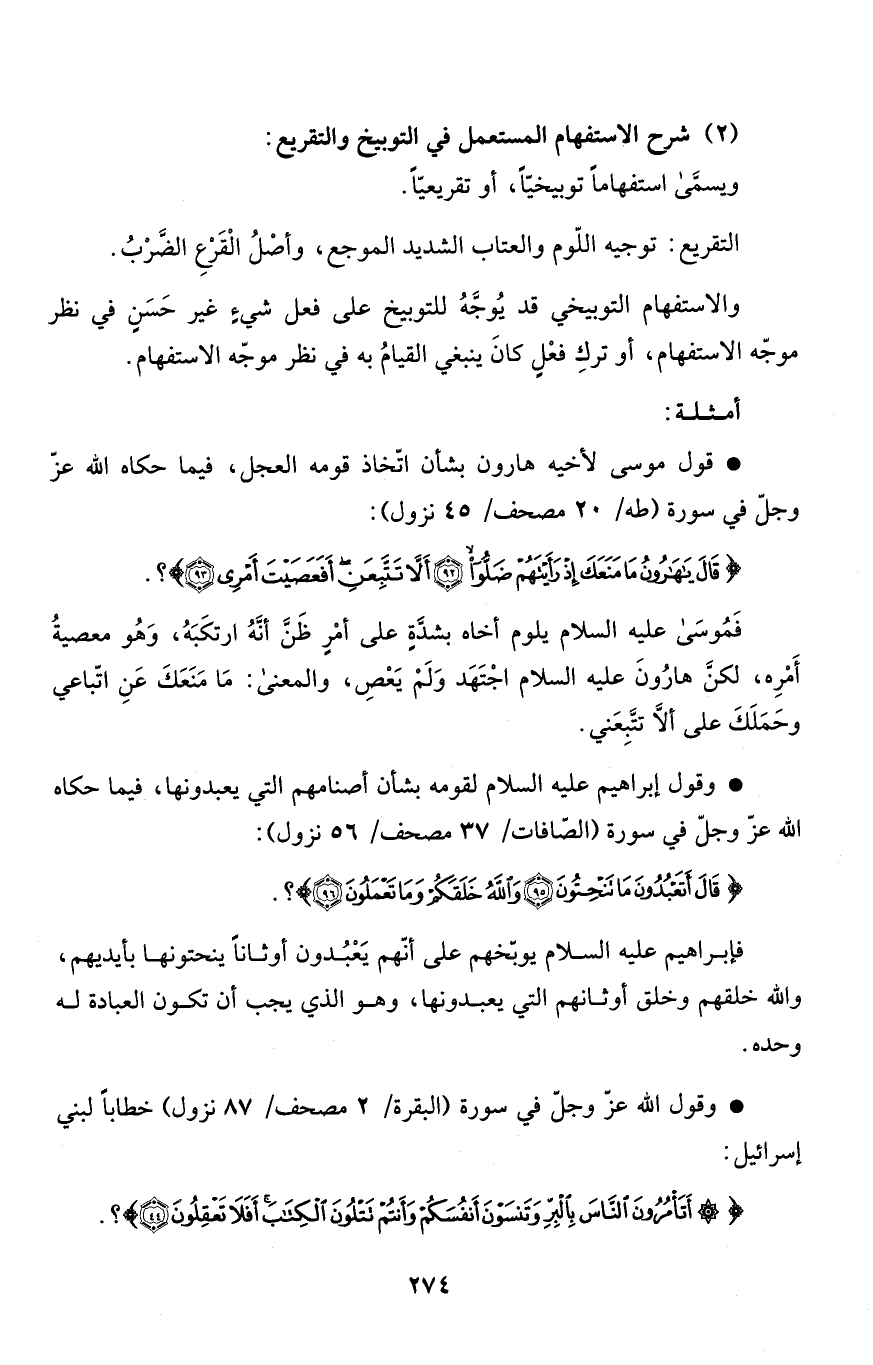 (٢) شرح الاستفهام المستعمل في التوبيخ والتقريع:
ويسمَّىٰ استفهاماً توبيخيّاً، أو تقريعيّاً.
التقريع: توجيه اللّوم والعتاب الشديد الموجع، وأصْلُ الْقَرْعِ الضَّرْبُ.
والاستفهام التوبيخي قد يُوجَّهُ للتوبيخ على فعل شيءٍ غير حَسَنٍ في نظر
موجّه الاستفهام، أو تركِ فعْلٍ كانَ ينبغي القيامُ به في نظر موجّه الاستفهام.
أمثلة:
● قول موسى لأخيه هارون بشأن اتّخاذ قومه العجل، فيما حكاه الله عزّ
وجلّ في سورة (طه/ ٢٠ مصحف/ ٤٥ نزول):
﴿ قَالَ يَٰهَٰرُونُ مَا مَنَعَكَ إِذْ رَأَيْتَهُمْ ضَلُّوٓا۟ۙ ٩٢ أَلَّا تَتَّبِعَنِۖ أَفَعَصَيْتَ أَمْرِى ٩٣ ﴾؟.
فَمُوسَىٰ عليه السلام يلوم أخاه بشدَّةٍ على أمْرٍ ظَنَّ أنَّهُ ارتكَبَهُ، وَهُو معصيةُ
أَمْرِه، لكنَّ هارُونَ عليه السلام اجْتَهَد وَلَمْ يَعْصِ، والمعنىٰ: مَا مَنَعَكَ عَنِ اتّباعي
وحَمَلَكَ على ألاَّ تتَّبِعَني.
● وقول إبراهيم عليه السلام لقومه بشأن أصنامهم التي يعبدونها، فيما حكاه
الله عزّ وجلّ في سورة (الصّافات/ ٣٧ مصحف/ ٥٦ نزول):
﴿ قَالَ أَتَعْبُدُونَ مَا تَنْحِتُونَ ٩٥ وَٱللَّهُ خَلَقَكُمْ وَمَا تَعْمَلُونَ ٩٦ ﴾؟.
فإبراهيم عليه السلام يوبّخهم على أنّهم يَعْبُدون أوثاناً ينحتونها بأيديهم،
والله خلقهم وخلق أوثانهم التي يعبدونها، وهو الذي يجب أن تكون العبادة له
وحده.
● وقول الله عزّ وجلّ في سورة (البقرة/ ٢ مصحف/ ٨٧ نزول) خطاباً لبني
إسرائيل:
﴿ ۞ أَتَأْمُرُونَ ٱلنَّاسَ بِٱلْبِرِّ وَتَنسَوْنَ أَنفُسَكُمْ وَأَنتُمْ تَتْلُونَ ٱلْكِتَٰبَۚ أَفَلَا تَعْقِلُونَ ٤٤ ﴾؟.
٢٧٤